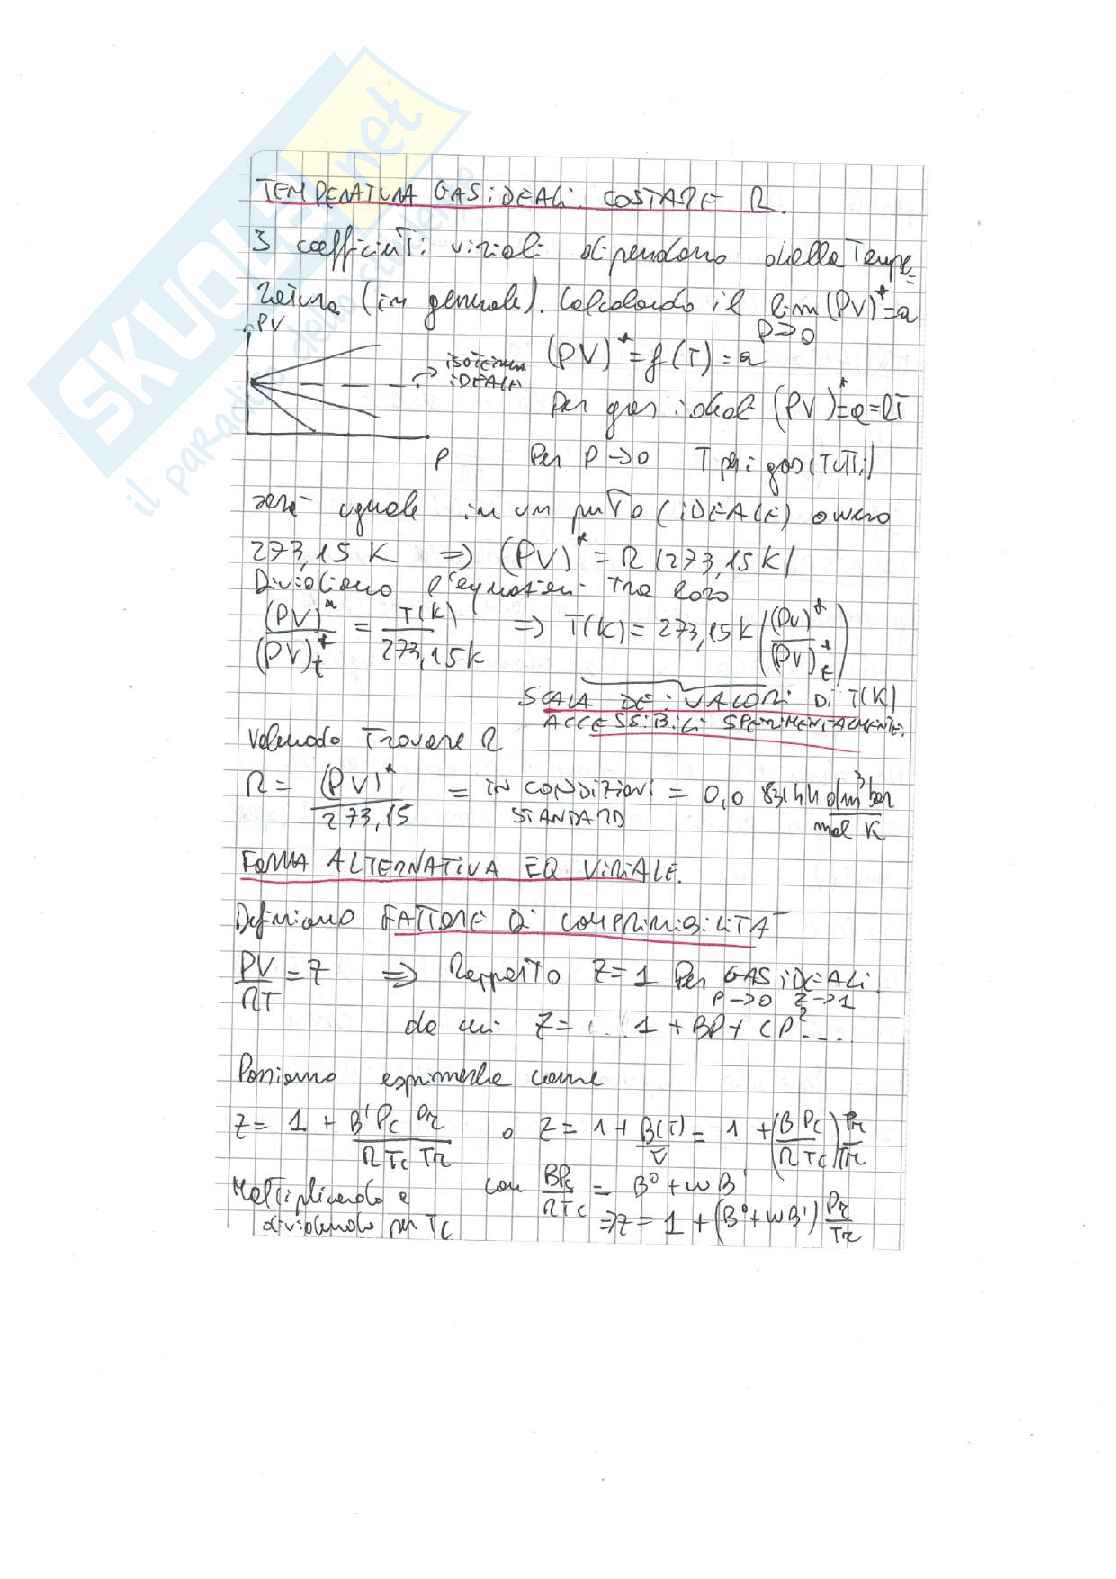 SKUOLA.net
il paradiso dello studente
TEMPERATURA GAS iDEALi. COSTANTE R.
I coefficienti viriali dipendono dalla Tempe=
ratura (in generale). Calcolando il lim (PV)*=a
P→0
PV
(PV)*=f(T)=a
isoterma
iDEALE
Per gas ideal (PV)*=a=RT
P
Per P→0 T per i gas (TUTTi)
sarà uguale in un punto (iDEALE) ovvero
273,15 K ⇒ (PV)* = R (273,15 K)
Dividiamo l'equazioni tra loro
(PV)*/(PV)*t = T(K)/273,15K ⇒ T(K)= 273,15K ((PV)*/(PV)*t)
SCALA DEi VALORi Di T(K)
ACCESSiBiLi SPERiMENTALMENTE.
Volendo Trovare R
R = (PV)*/273,15 = iN CONDiZiONi STANDARD = 0,083144 dm³ bar/mol K
FORMA ALTERNATiVA EQ. ViRiALE.
Definiamo FATTORE Di COMPRiMiBiLiTA'
PV/RT = Z ⇒ Rapporto Z=1 Per GAS iDEALi
P→0 Z→1
da cui Z= ... 1 + BP + CP²...
Possiamo esprimerla come
Z= 1 + B'Pc Pr/R Tc Tr o Z= 1 + B(T)/V = 1 + (B Pc/R Tc) Pr/Tr
Moltiplicando e dividendo per Tc
con BPc/RTc = B° + ωB'
⇒ Z= 1 + (B°+ωB') Pr/Tr